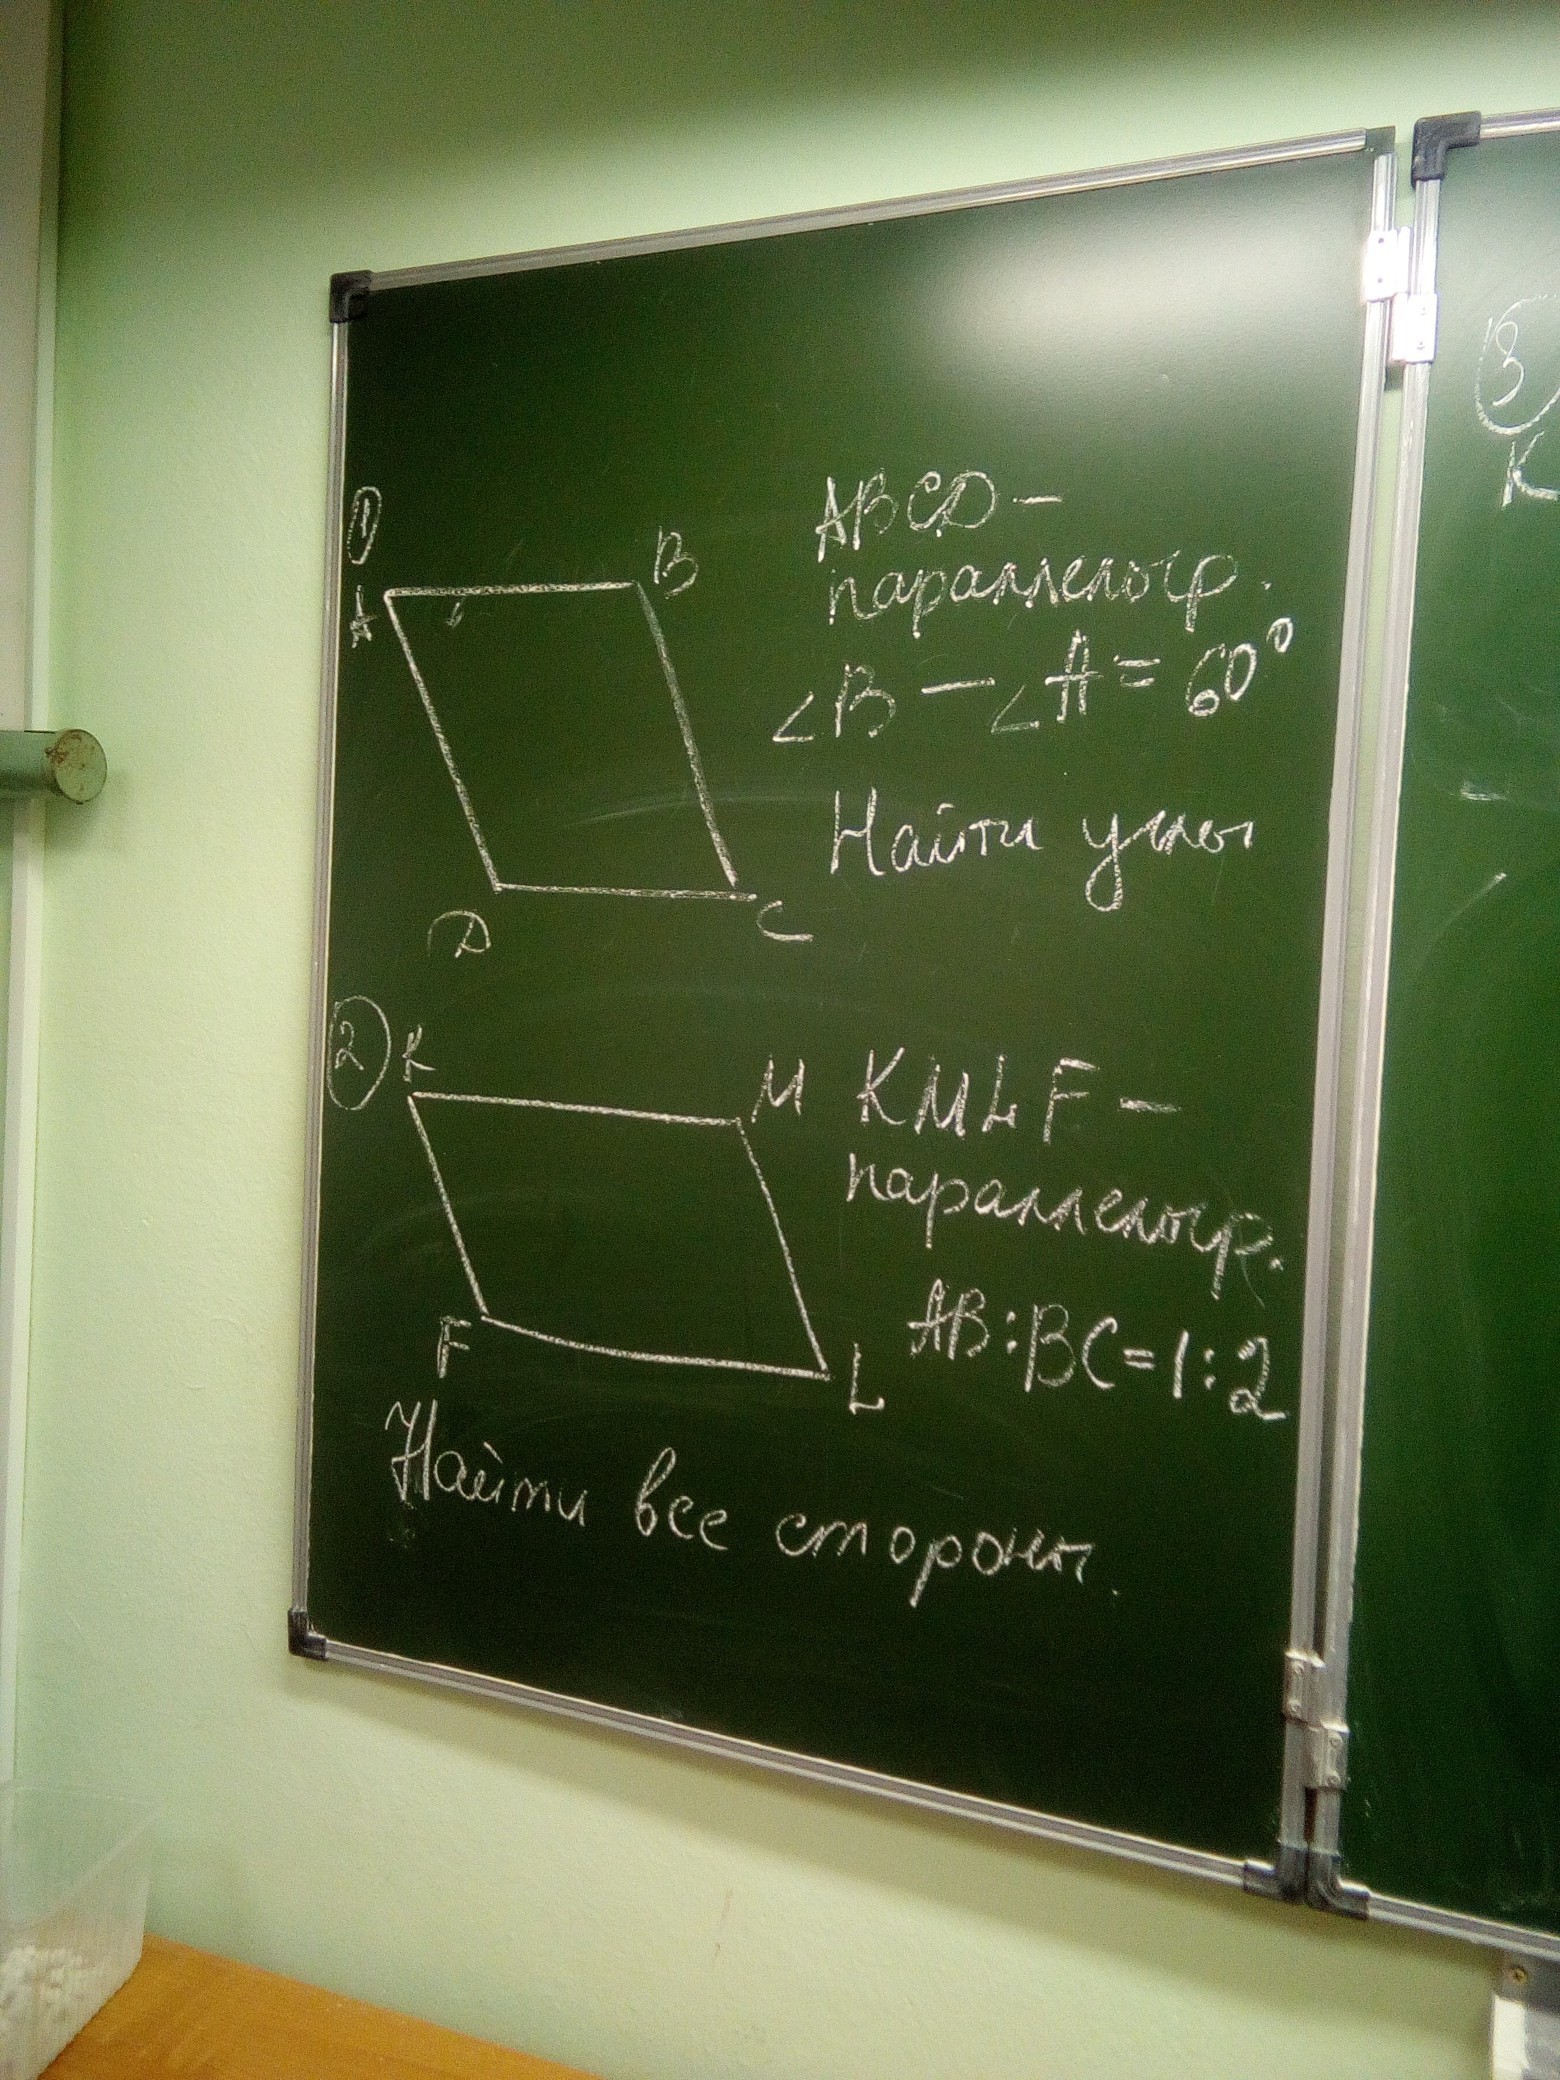 1
A
B
D
C
ABCD –
параллелогр.
∠B – ∠A = 60°
Найти углы
2
K
M
F
L
KMLF –
параллелогр.
AB:BC=1:2
Найти все стороны.
3
K